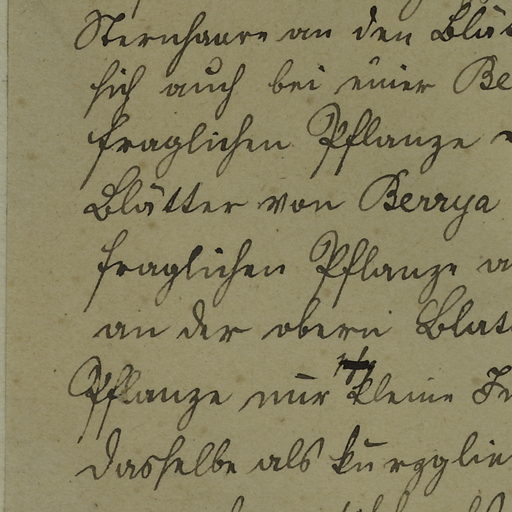 Sternhaare an den Blät
sich auch bei einer Be
fraglichen Pflanze
Blätter von Berrya
fraglichen Pflanze a
an der obern Blat
Pflanze nur kleine
dasselbe als kurzglie